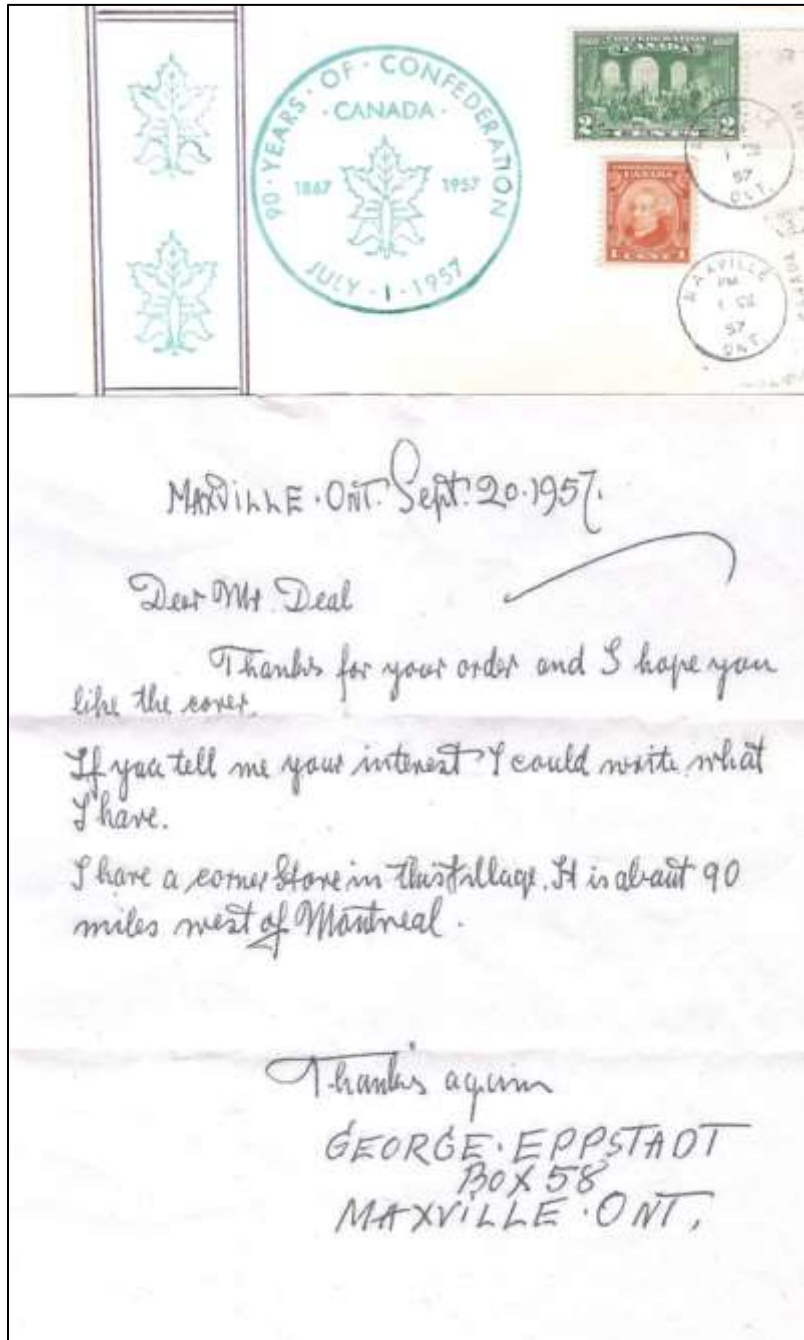 90 · YEARS · OF · CONFEDERATION
· CANADA ·
1867 1957
JULY · 1 · 1957
CONFEDERATION
CANADA
2 CENTS 2
CANADA
1 CENT 1
57
ONT.
MAXVILLE
PM
1
57
ONT.
CANADA
MAXVILLE · ONT. Sept. 20 · 1957.
Dear Mr. Deal
Thanks for your order and I hope you
like the cover.
If you tell me your interest I could write what
I have.
I have a corner Store in this Village. It is about 90
miles west of Montreal.
Thanks again
GEORGE · EPPSTADT
BOX 58
MAXVILLE · ONT.